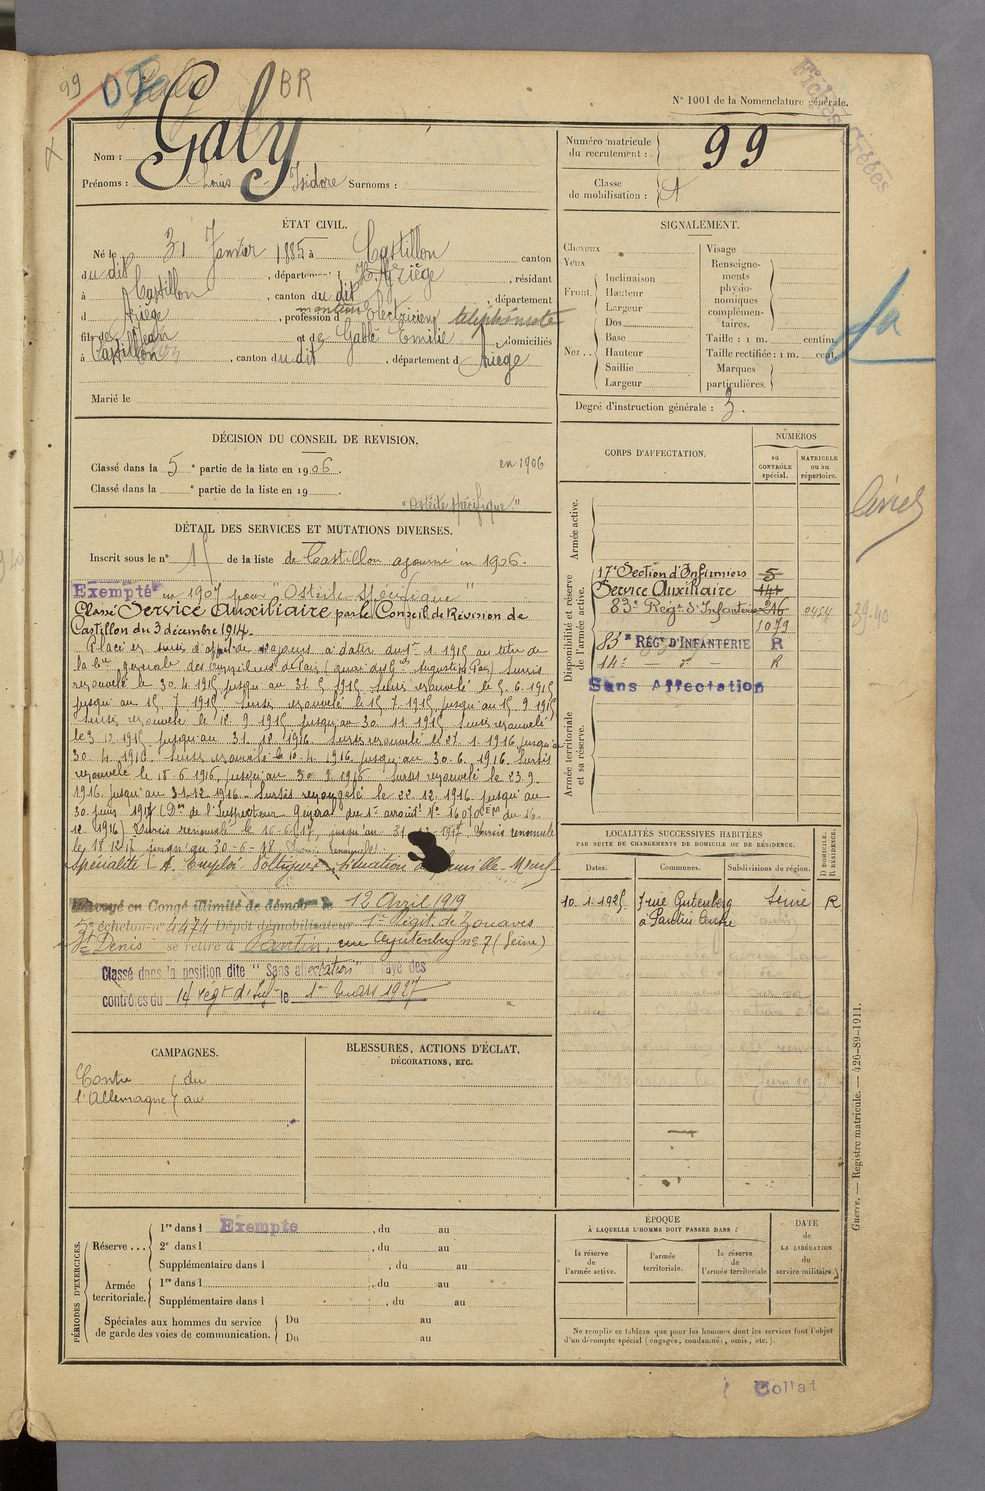 99
BR
N° 1001 de la Nomenclature générale.
Fiches Créées
Nom : Galy
Prénoms : Louis Isidore Surnoms :
Numéro matricule du recrutement : 99
Classe de mobilisation :
ÉTAT CIVIL.
Né le 31 Janvier 1885 à Castillon canton
du dit, département Ariège, résidant
à Castillon, canton du dit, département
d Ariège, profession de monteur électricien téléphoniste
fils de Jean et de Galé Emilie domiciliés
à Castillon, canton du dit, département d Ariège
Marié le
SIGNALEMENT.
Cheveux
Yeux
Front.
Inclinaison
Hauteur
Largeur
Nez ..
Dos
Base
Hauteur
Saillie
Largeur
Visage
Renseignements physionomiques complémentaires.
Taille : 1 m. centim.
Taille rectifiée : 1 m. cent.
Marques particulières.
Degré d'instruction générale : 3.
DÉCISION DU CONSEIL DE REVISION.
Classé dans la 5e partie de la liste en 1906. en 1906
Classé dans la e partie de la liste en 19 .
"Ostéite spécifique"
DÉTAIL DES SERVICES ET MUTATIONS DIVERSES.
Inscrit sous le n° 15 de la liste de Castillon ajourné en 1906.
Exempté en 1907 pour "Ostéite spécifique"
Classé Service Auxiliaire par le Conseil de Révision de
Castillon du 3 décembre 1914.
Placé en sursis d'appel à dater du 1er 1 1915 au titre de
la Cie générale des
renouvelé le 30.4.1915 jusqu'au 31.5.1915 Sursis renouvelé le 5.6.1915
jusqu'au 15.7.1915 Sursis renouvelé le 15.7.1915 jusqu'au 15.9.1915
Sursis renouvelé le 12.9.1915 jusqu'au 30.11.1915 Sursis renouvelé
le 3.12.1915 jusqu'au 31.12.1916. Sursis renouvelé le 27.1.1916 jusqu'au
30.4.1916. Sursis renouvelé le 10.4.1916 jusqu'au 30.6.1916. Sursis
renouvelé le 15.6.1916 jusqu'au 30.9.1916 Sursis renouvelé le 23.9.
1916 jusqu'au 31.12.1916. Sursis renouvelé le 22.12.1916 jusqu'au
30 juin 1917 (Don de l'Inspecteur Général du
12.1916) Sursis renouvelé le 16.6.17, jusqu'au 31 1917 Sursis renouvelé
le 18.12.17 jusqu'au 30-6-18
Spécialité Emploi Voltigeur situation de famille
Envoyé en Congé illimité de démobon le 12 Avril 1919
5e échelon n° 4474 Dépôt démobilisateur 1er Régit. de Zouaves
St Denis se retire à Pantin, rue Gutenberg n° 7 (Seine)
Classé dans la position dite "Sans affectation" et rayé des
contrôles du 14 régt d'Inf le 1er Mars 1927
CORPS D'AFFECTATION.
NUMÉROS
au CONTRÔLE spécial.
MATRICULE ou au répertoire.
Armée active.
Disponibilité et réserve de l'armée active.
Armée territoriale et sa réserve.
17e Section d'Infirmiers 5
Service Auxiliaire 141
83e Regt d'Infanterie 216
1079
83e RÉGt D'INFANTERIE R
14e — d° — R
Sans Affectation
LOCALITÉS SUCCESSIVES HABITÉES
PAR SUITE DE CHANGEMENTS DE DOMICILE OU DE RÉSIDENCE.
Dates.
Communes.
Subdivisions de région.
D DOMICILE. R RÉSIDENCE.
10.1.1925 7 rue Gutenberg Seine R
à Pantin Centre
CAMPAGNES.
Contre l'Allemagne du
au
BLESSURES, ACTIONS D'ÉCLAT,
DÉCORATIONS, ETC.
PÉRIODES D'EXERCICES.
Réserve ...
1re dans l Exempté, du au
2e dans l , du au
Supplémentaire dans l , du au
Armée territoriale.
1re dans l , du au
Supplémentaire dans l , du au
Spéciales aux hommes du service de garde des voies de communication.
Du au
Du au
ÉPOQUE
À LAQUELLE L'HOMME DOIT PASSER DANS :
la réserve de l'armée active.
l'armée territoriale.
la réserve de l'armée territoriale
DATE de LA LIBÉRATION du service militaire.
Ne remplir ce tableau que pour les hommes dont les services font l'objet
d'un décompte spécial (engagés, condamnés, omis, etc.).
Guerre. — Registre matricule. — 426-89-1911.
Collat